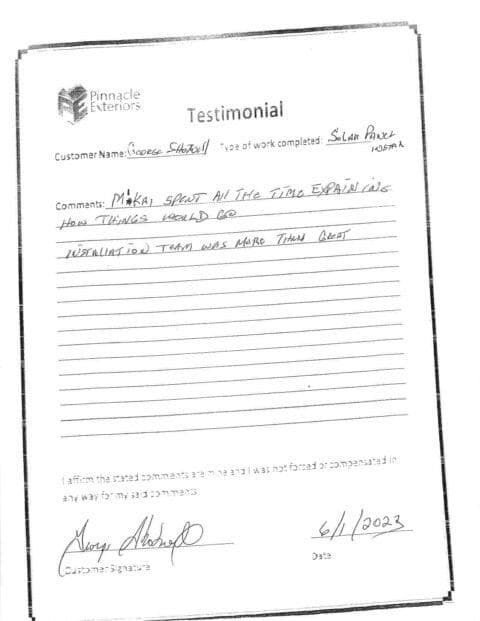 Pinnacle
Exteriors
Testimonial
Customer Name: George Type of work completed: Solar Panel
Comments: Mikai SPENT All THE TIME EXPAINING
HOW THINGS WOULD GO
INSTALLATION TEAM WAS MORE THAN GREAT
I affirm the stated comments are mine and I was not forced or compensated in
any way for my said comments
George
6/1/2023
Customer Signature
Date